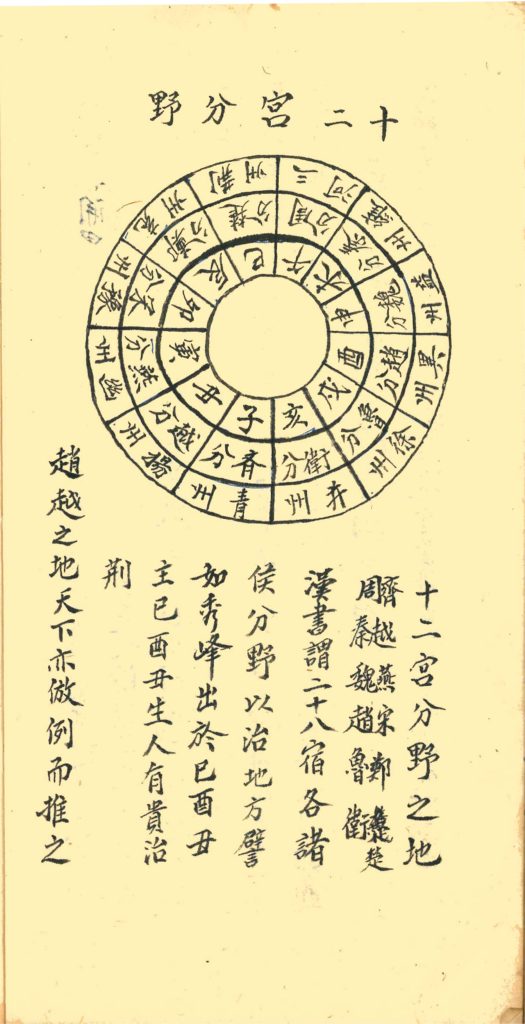 十二宮分野
子 齊分 青州
丑 越分 揚州
寅 燕分 幽州
卯 宋分 州
辰 鄭分 兗州
巳 楚分 荆州
午 周分 三河
未 秦分 州
申 魏分 益州
酉 趙分 冀州
戌 魯分 徐州
亥 衛分 并州
十二宮分野之地
齊越燕宋鄭楚
周秦魏趙魯衛
漢書謂二十八宿各諸
侯分野以治地方譬
如秀峰出於巳酉丑
主巳酉丑生人有貴治
荆
趙越之地天下亦倣例而推之